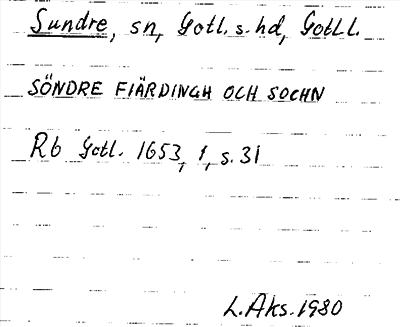 Sundre, sn, Gotl. s. hd, Gotl l.
SÖNDRE FIÄRDINGH OCH SOCHN
Rb Gotl. 1653, 1, s. 31
L. Aks. 1980